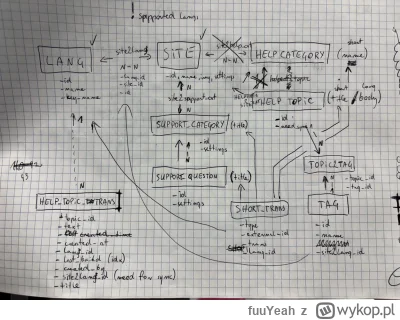 ! supported langs
LANG
site2lang
N-N
SITE
N-N
HELP_CATEGORY
short
(name)
-id
-name
-key-name
-lang_id
-site_id
-id, name, img, settings
site2support.cat
HELP TOPIC
short
(title
long
/body)
-id
SUPPORT_CATEGORY
(title)
-id
-settings
TOPIC2TAG
-topic_id
-tag_id
SUPPORT QUESTION
(title)
-id
-settings
HELP_TOPIC_TRANS
SHORT_TRANS
TAG
-type
-external_id
-trans
-lang_id
-id
-name
-site2lang_id
-topic_id
-text
-created_at
-lang_id
-created_by
-site2lang_id (need for sync)
-title
fuuYeah z wykop.pl